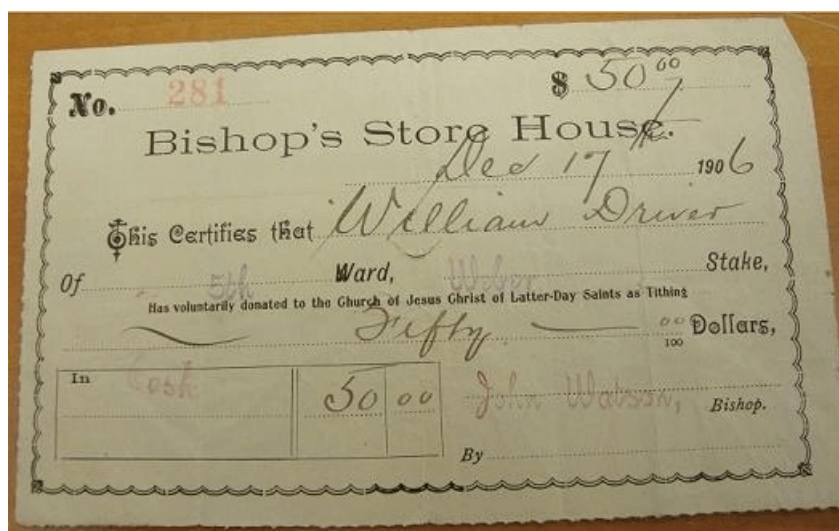 No. 281 $ 50 00
Bishop's Store House.
Dec 17 1906
This Certifies that William Driver
Of 5th Ward, Weber Stake,
Has voluntarily donated to the Church of Jesus Christ of Latter-Day Saints as Tithing
Fifty 00/100 Dollars,
In Cash 50 00 John Watson, Bishop.
By